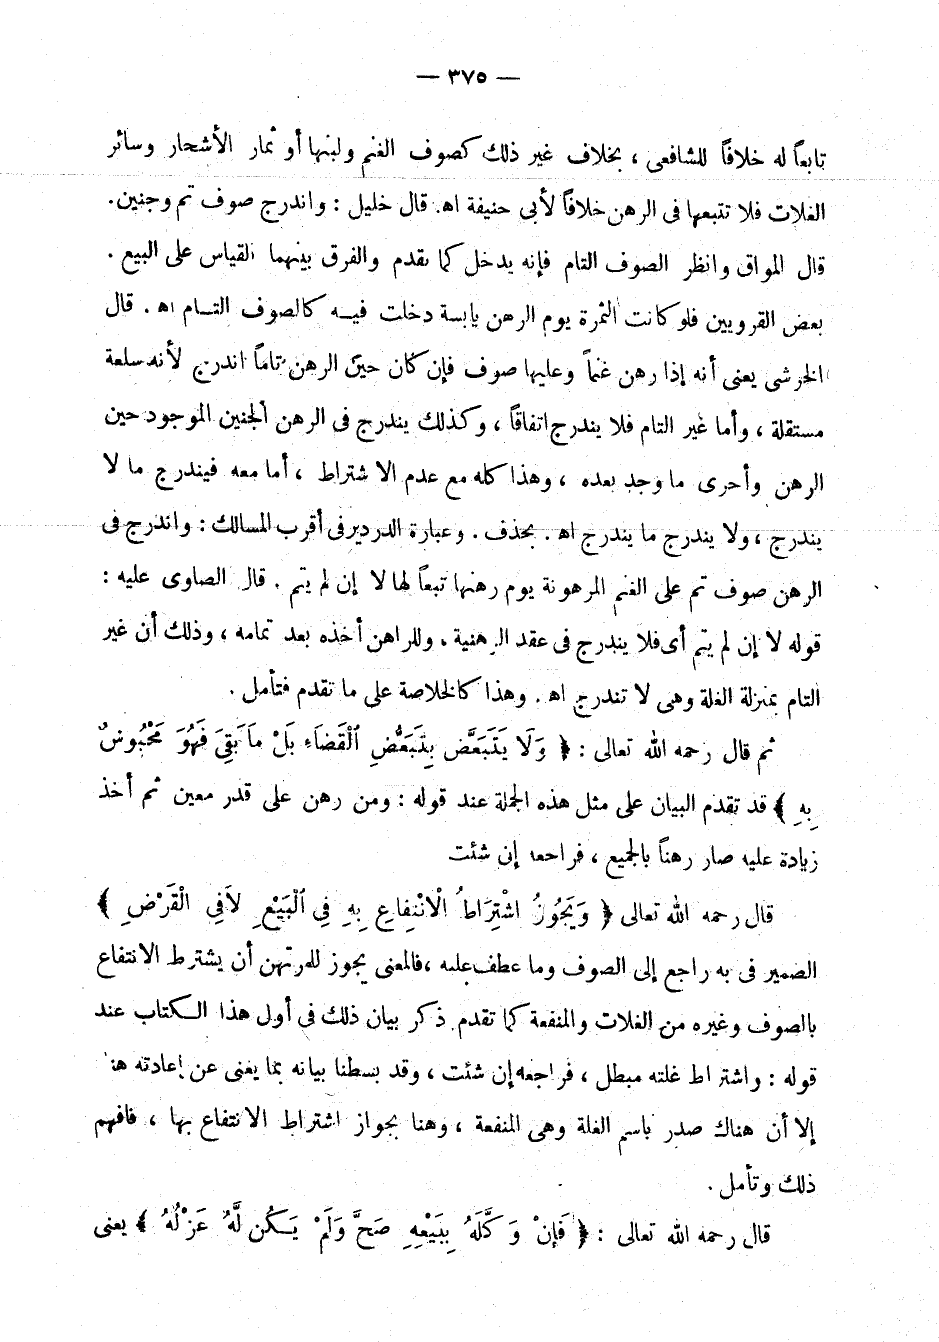 — ٣٧٥ —
تابعاً له خلافاً للشافعى ، بخلاف غير ذلك كصوف الغنم ولبنها أو ثمار الأشجار وسائر
الغلات فلا تتبعها فى الرهن خلافاً لأبى حنيفة اهـ. قال خليل : واندرج صوف تم وجنين.
قال المواق وانظر الصوف التام فإنه يدخل كما تقدم والفرق بينهما القياس على البيع .
بعض القرويين فلو كانت الثمرة يوم الرهن يابسة دخلت فيـه كالصوف التـام اهـ . قال
الخرشى يعنى أنه إذا رهن غنماً وعليها صوف فإن كان حين الرهن تاماً اندرج لأنه سلعة
مستقلة ، وأما غير التام فلا يندرج اتفاقاً ، وكذلك يندرج فى الرهن الجنين الموجود حين
الرهن وأحرى ما وجد بعده ، وهذا كله مع عدم الاشتراط ، أما معه فيندرج ما لا
يندرج ، ولا يندرج ما يندرج اهـ . بحذف . وعبارة الدردير فى أقرب المسالك : واندرج فى
الرهن صوف تم على الغنم المرهونة يوم رهنها تبعاً لها لا إن لم يتم . قال الصاوى عليه :
قوله لا إن لم يتم أى فلا يندرج فى عقد الرهنية . وللراهن أخذه بعد تمامه ، وذلك أن غير
التام بمنزلة الغلة وهى لا تندرج اهـ . وهذا كالخلاصة على ما تقدم فتأمل .
ثم قال رحمه الله تعالى : ﴿ وَلَا يَتَبَعَّض بِتَبَعُّضِ ٱلْقَضَاءِ بَلْ مَا بَقِىَ فَهُوَ مَحْبُوسٌ
بِهِ ﴾ قد تقدم البيان على مثل هذه الجملة عند قوله : ومن رهن على قدر معين ثم أخذ
زيادة عليه صار رهناً بالجميع ، فراجعه إن شئت
قال رحمه الله تعالى ﴿ وَيَجُوزُ اشْتِرَاطُ الْاِنْتِفَاعِ بِهِ فِى ٱلْبَيْعِ لَافِى الْقَرْضِ ﴾
الضمير فى به راجع إلى الصوف وما عطف عليه ، فالمعنى يجوز للمرتهن أن يشترط الانتفاع
بالصوف وغيره من الغلات والمنفعة كما تقدم ذكر بيان ذلك فى أول هذا الكتاب عند
قوله : واشتراط غلته مبطل ، فراجعه إن شئت ، وقد بسطنا بيانه بما يغنى عن إعادته هنا
إلا أن هناك صدر باسم الغلة وهى المنفعة ، وهنا بجواز اشتراط الانتفاع بها ، فافهم
ذلك وتأمل .
قال رحمه الله تعالى : ﴿ فَإِنْ وَكَّلَهُ بِبَيْعِهِ صَحَّ وَلَمْ يَـكُن لَّهُ عَزْلُهُ ﴾ يعنى